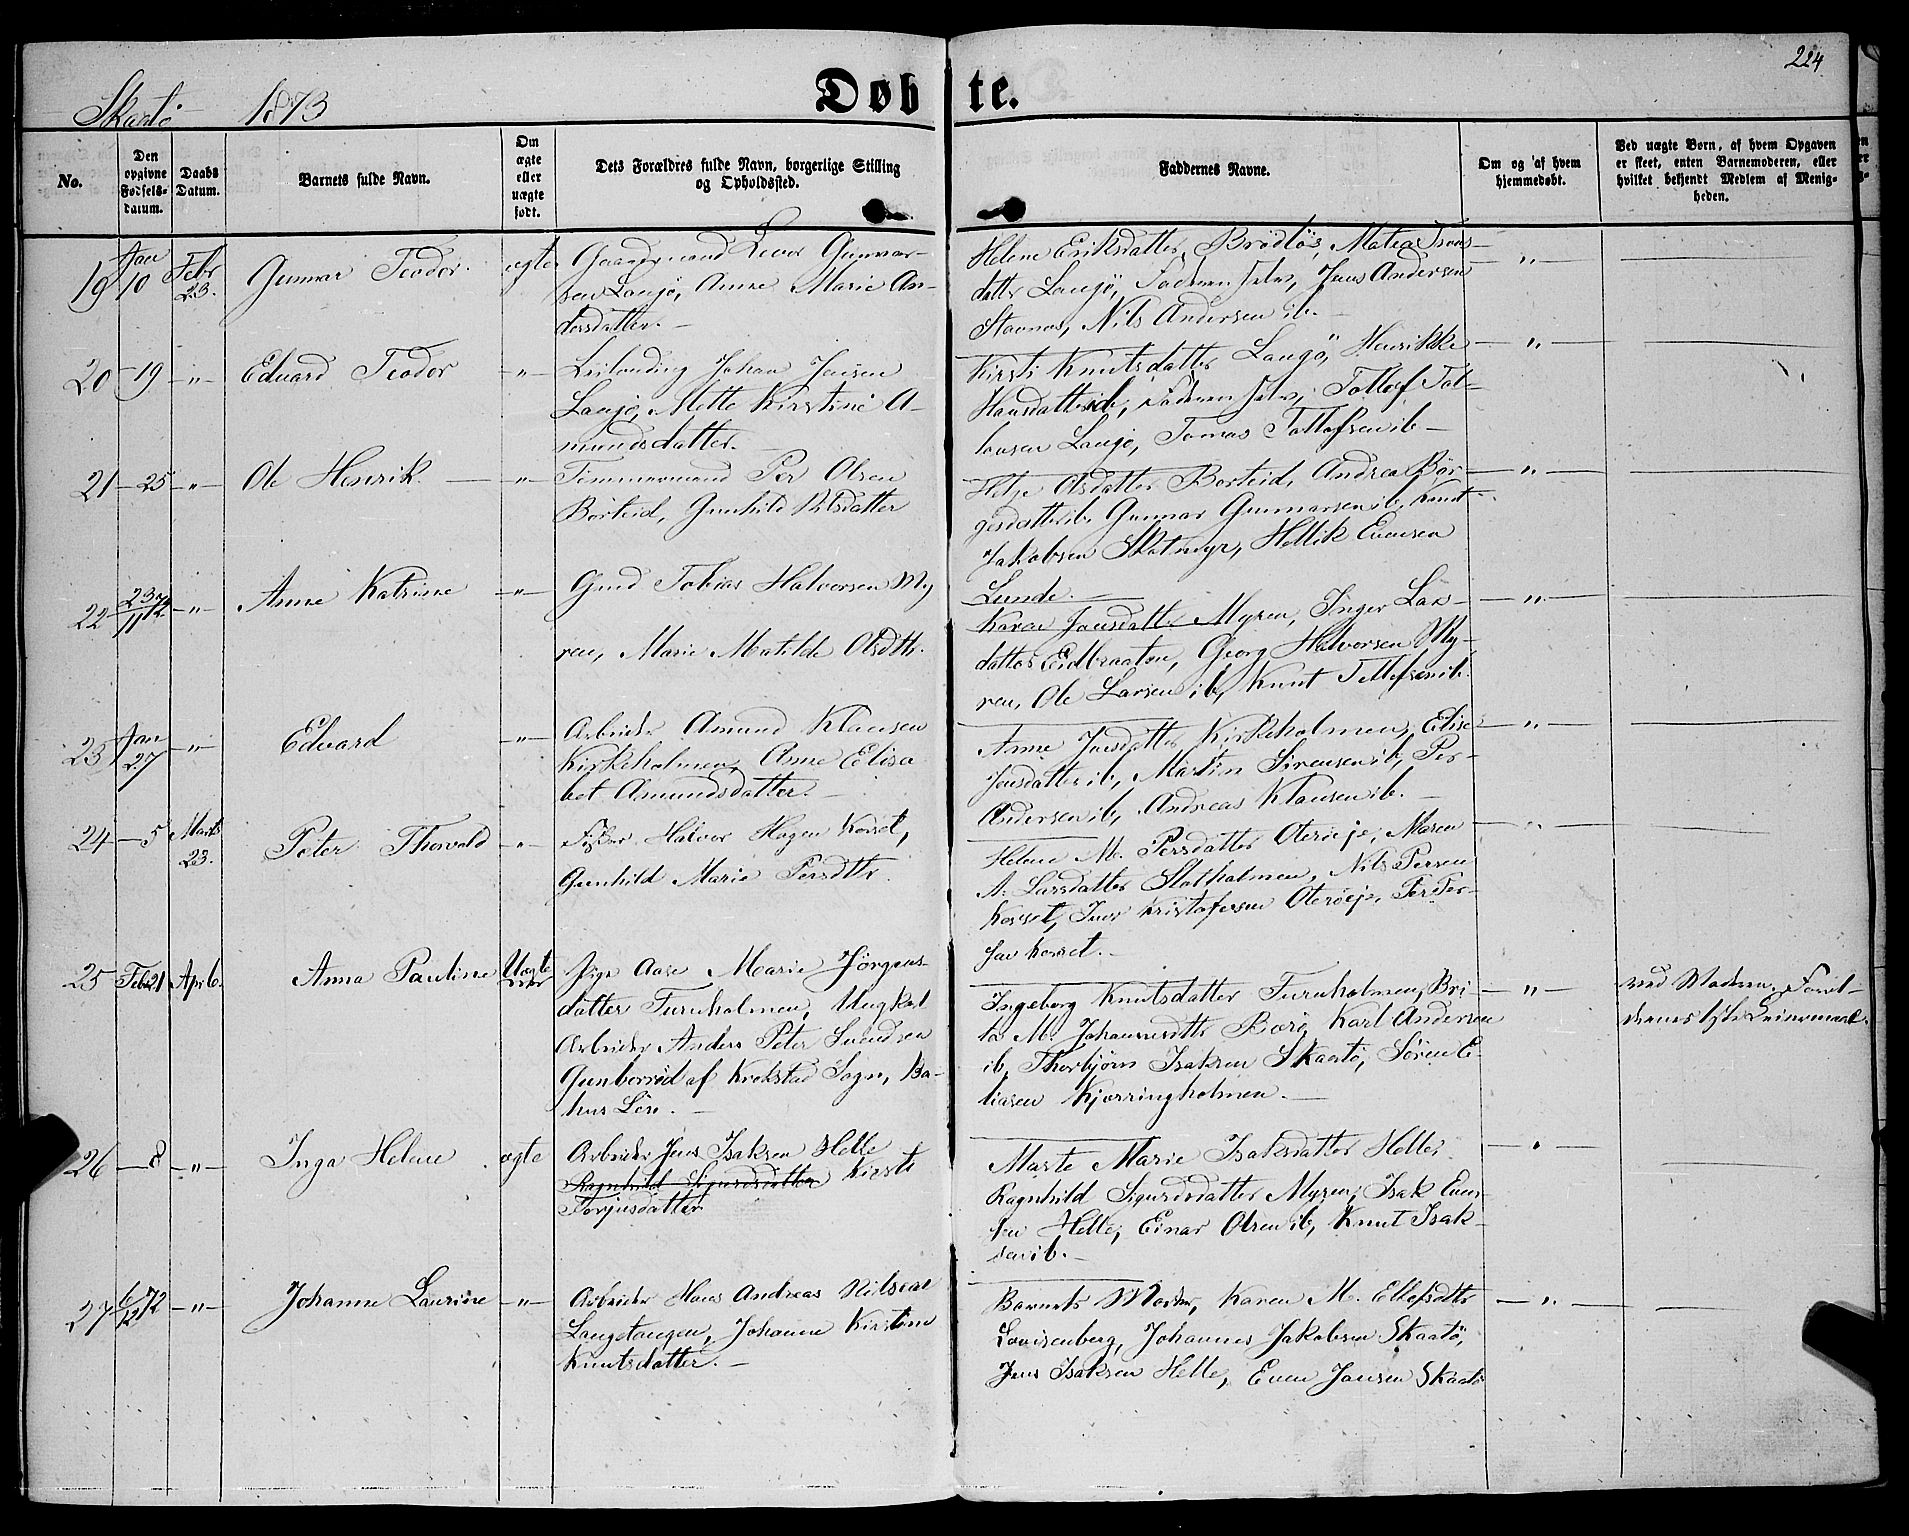 224.
Skaatö 1873
Døbte.
No.
Den opgivne Fødsels-datum.
Daabs Datum.
Barnets fulde Navn.
Om ægte eller uægte født.
Dets Forældres fulde Navn, borgerlige Stilling og Opholdssted.
Faddernes Navne.
Om og af hvem hjemmedøbt.
Ved uægte Børn, af hvem Opgaven er skeet, enten Barnemoderen, eller hvilket bekjendt Medlem af Menigheden.
19 Jan 10 Febr 23. Gunnar Teodor. ægte
Gaardmand Levor Gunnar-
sen Langö, Anne Marie An-
dersdatter.
Helene Eriksdatter Brödlös, Matea
datter Langö, Faderen selv, Jens Andersen
Stavnes, Nils Andersen ib.
20 — 19 — " — Eduard Teodor — " —
Leilending Johan Jensen
Langö, Mette Kirstine A-
mundsdatter.
Kirsti Knutsdatter Langö, Henrikke
Hansdatter ib, Faderen selv, Tollef Tol-
lensen Langö, Tomas Tollefsen ib —
21 — 25 — " — Ole Henrik. — " —
Tömmermand Per Olsen
Borteid, Gunhild Olsdatter
Helje Olsdatter Borteid, Andrea Bör-
gesdatter ib, Gunnar Gunnarsen ib, Knut
Jakobsen Skotmyr, Hellik Evensen
Lunde.
22 23/11 72 — " — Anne Katrine — " —
Gmd Tobias Halvorsen My
ren, Marie Matilde Olsdtr.
Karen Jensdatter Myren, Inger Lars-
datter Eidbraaten, Georg Halvorsen My-
ren, Ole Larsen ib, Knut Tellefsen ib.
23 Jan 27 — " — Edvard — " —
Arbeider Amund Klausen
Kirkeholmen, Anne Elisa
bet Amundsdatter.
Anne Jensdatter Kirkeholmen, Elise
Jensdatter ib, Martin Sörensen ib, Per
Andersen ib, Andreas Klausen ib.
24 — 5 Marts 23. Peter Thorvald — " —
Fisker Halvor Hagen Korset,
Gunhild Marie Persdtr.
Helene M. Persdatter Oteröeje, Maren
A. Larsdatter Slotholmen, Nils Persen
Korset, Jens Kristofersen Oteröeje, Per Per-
sen Korset.
25 Feb 21 Apr 6. Anna Pauline Uægte
Pige Aase Marie Jörgens-
datter Furuholmen, Ungkal
Arbeider Anders Peter Svendsen
Gunberöd af Krokstad Sogn, Ba-
hus Len.
Ingeborg Knutsdatter Furuholmen, Bri
ta M. Johannesdtr Barö, Karl Andersen
ib, Thorbjörn Isaksen Skaatö, Sören E-
liasen Kjerringholmen.
ved Moderen. Foræl-
drenes 1ste Leiermaal.
26 — 8 — " — Inga Helene ægte
Arbeider Jens Isaksen Helle
Ragnhild Sigurdsdatter Kirsti
Torjusdatter
Marte Marie Isaksdatter Helle,
Ragnhild Sigurdsdatter Myren, Isak Even-
sen Helle, Einar Olsen ib, Knut Isak-
sen ib.
27 6/12 72 — " — Johanne Laurine — " —
Arbeider Hans Andreas Nilsen
Langetangen, Johanne Kirstine
Knutsdatter.
Barnets Moder, Karen M. Ellefsdtr
Lovisenberg, Johannes Jakobsen Skaatö,
Jens Isaksen Helle, Even Jansen Skaatö